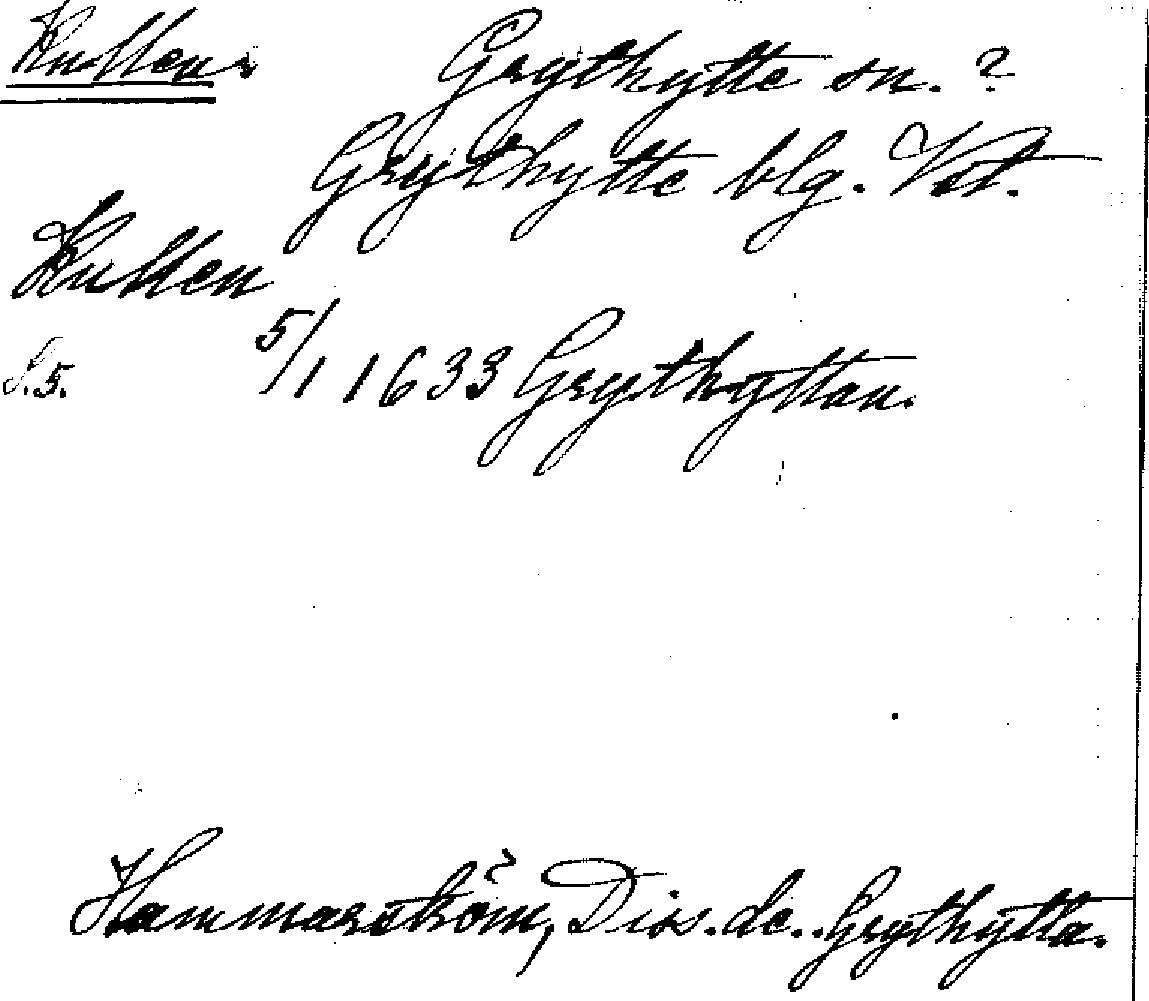 Kullen. Grythytte sn. ?
Grythytte blg. Vstl.
Kullen
S.5. 5/1 1633 Grythyttan.
Hammarström, Diss. de. Grythytta.